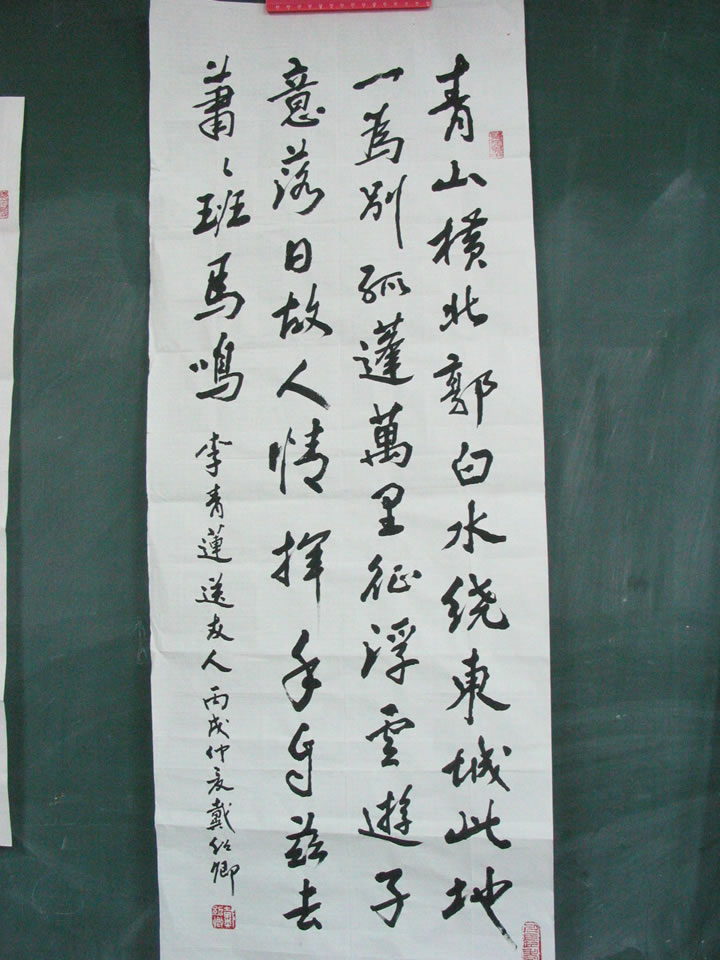 青山橫北郭白水绕東城此地
一為別孤蓬萬里征浮雲遊子
意落日故人情揮手自茲去
蕭〻班馬鳴 李青蓮送友人 丙戌仲夏戴紹卿